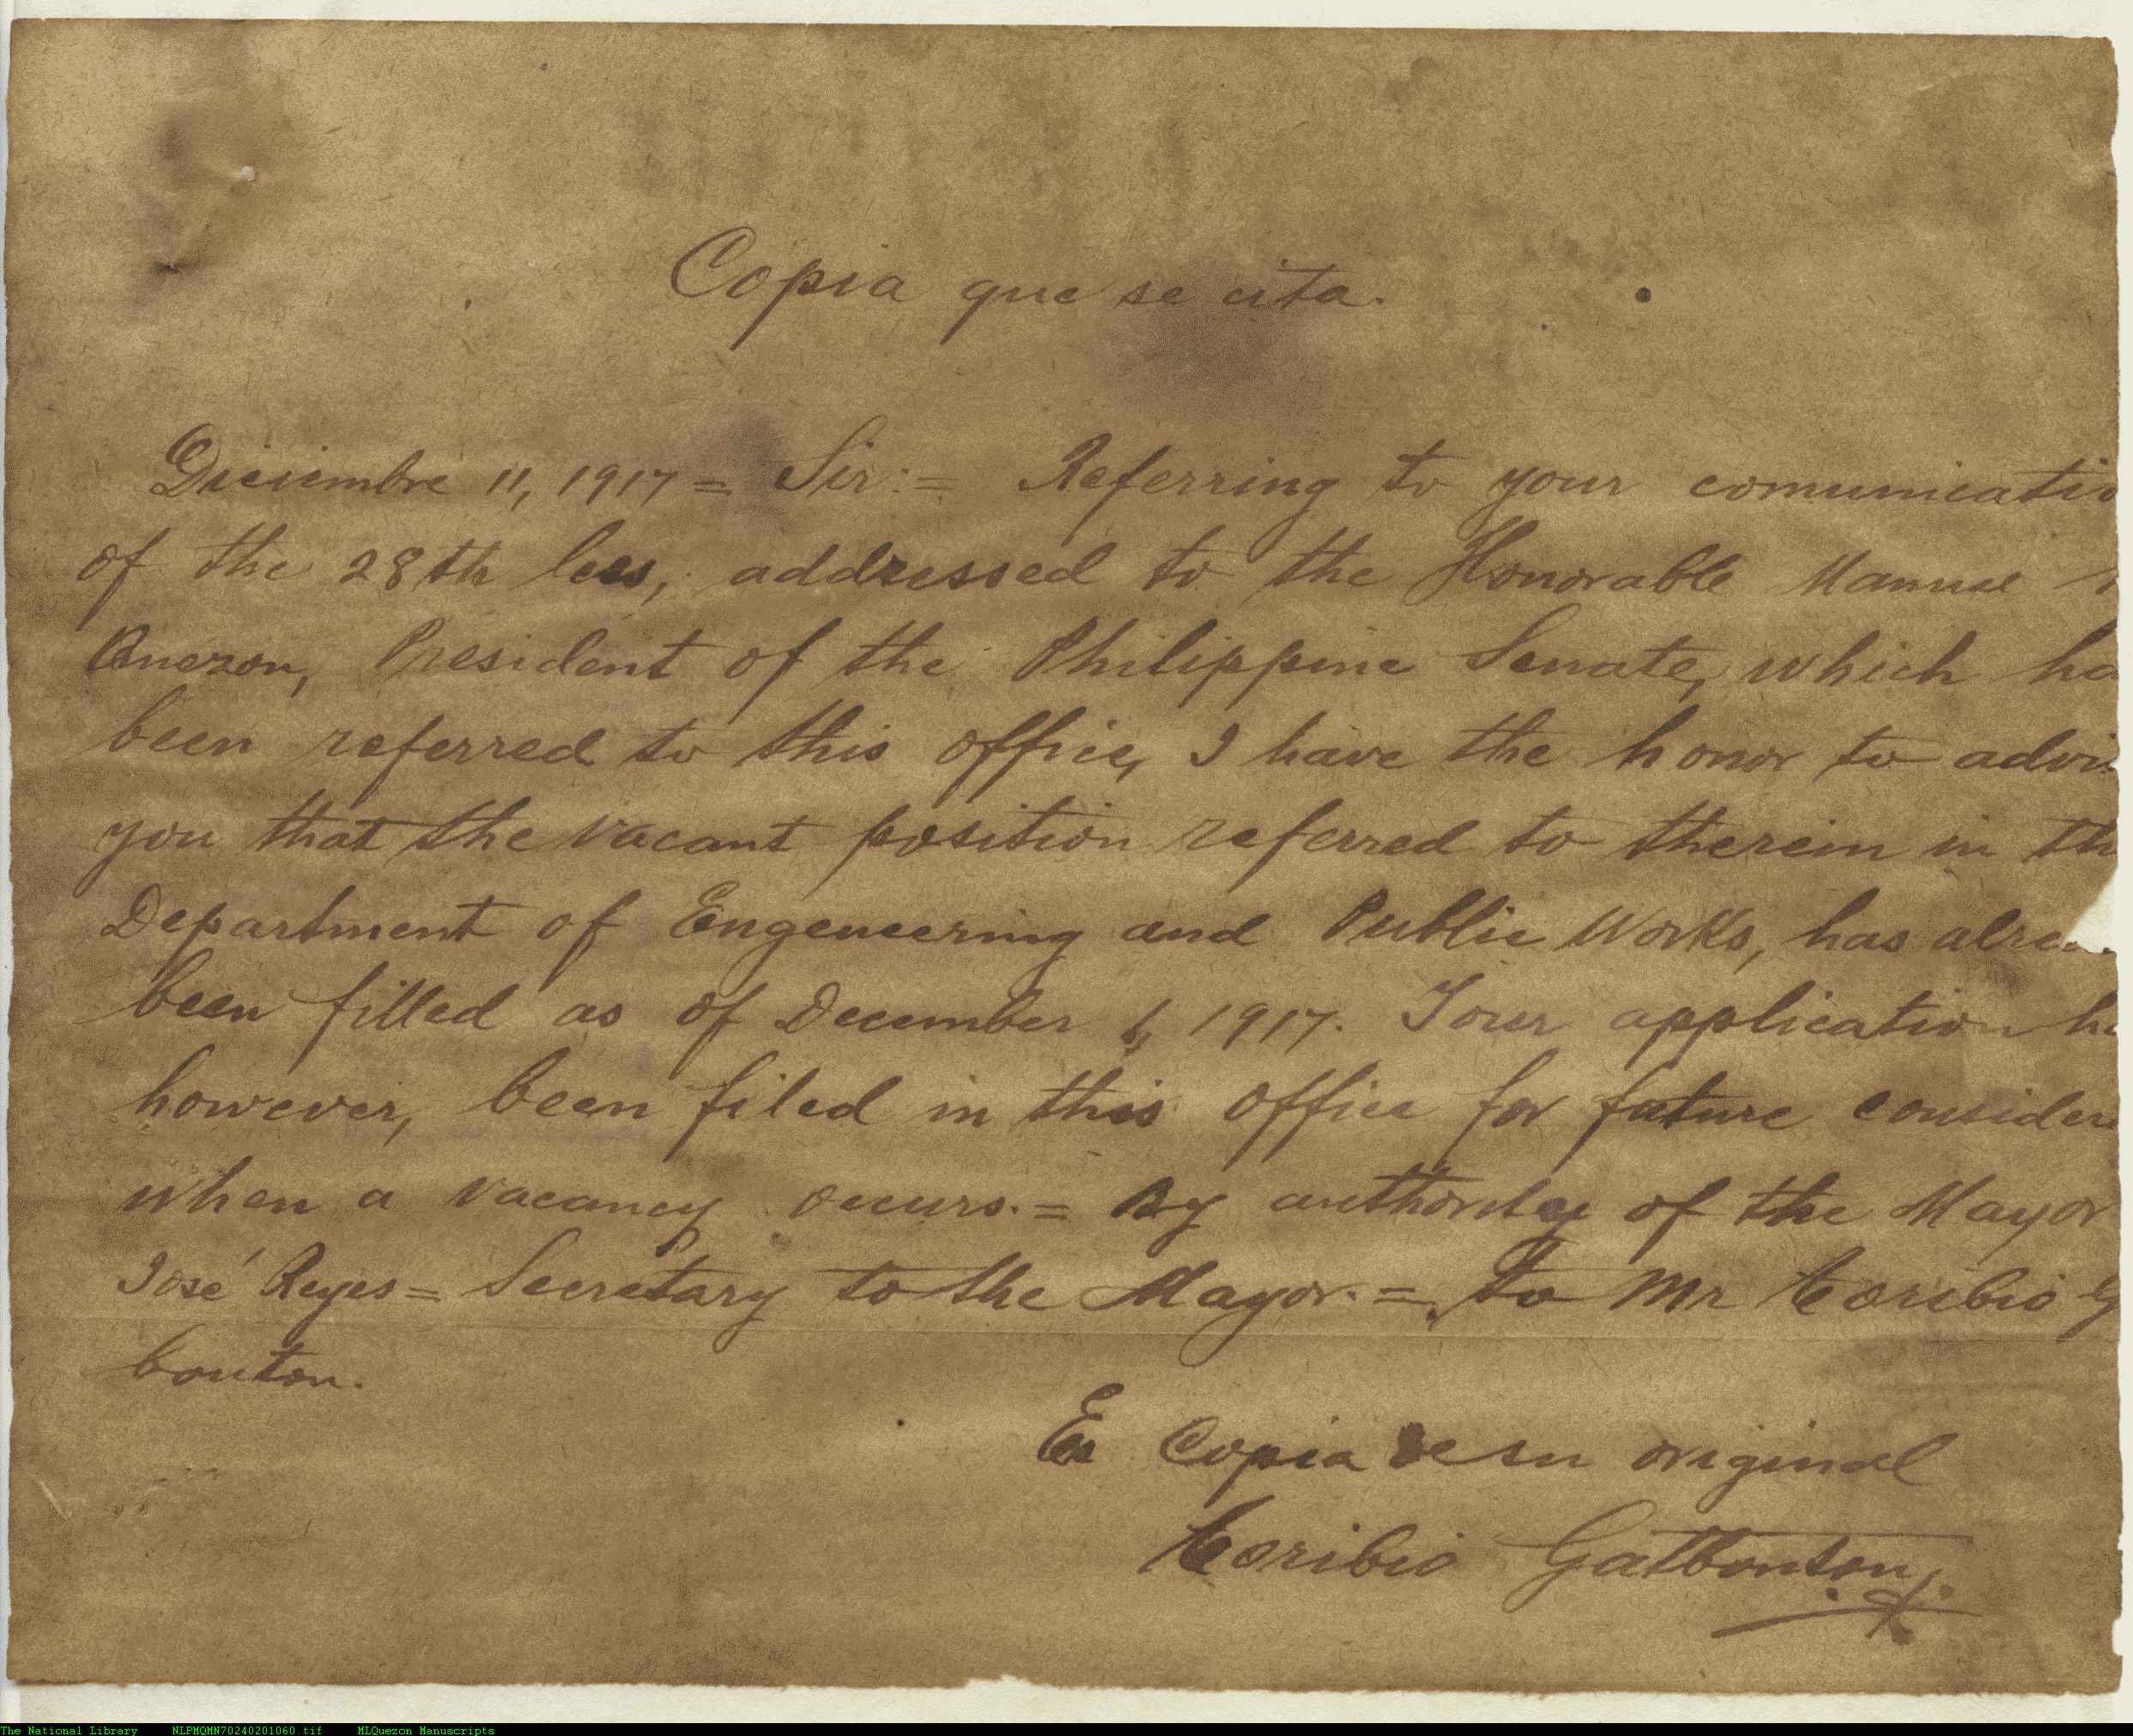 Copia que se cita.
Diciembre 11, 1917 = Sir: = Referring to your comunicatio
of the 28th addressed to the Honorable Manuel
Quezon, President of the Philippine Senate, which ha
been referred to this office, I have the honor to advis
you that the vacant position referred to therein in th
Department of Engeneering and Public Works, has alrea
been filled as of December 1917. Your application ha
however, been filed in this office for future consider
when a vacancy occurs. = By authority of the Mayor
José Reyes = Secretary to the Mayor. = to Mr Toribio G
bonton.
Es Copia de su original
Toribio Gatbonton
The National Library NLPMQMN70240201060.tif MLQuezon Manuscripts